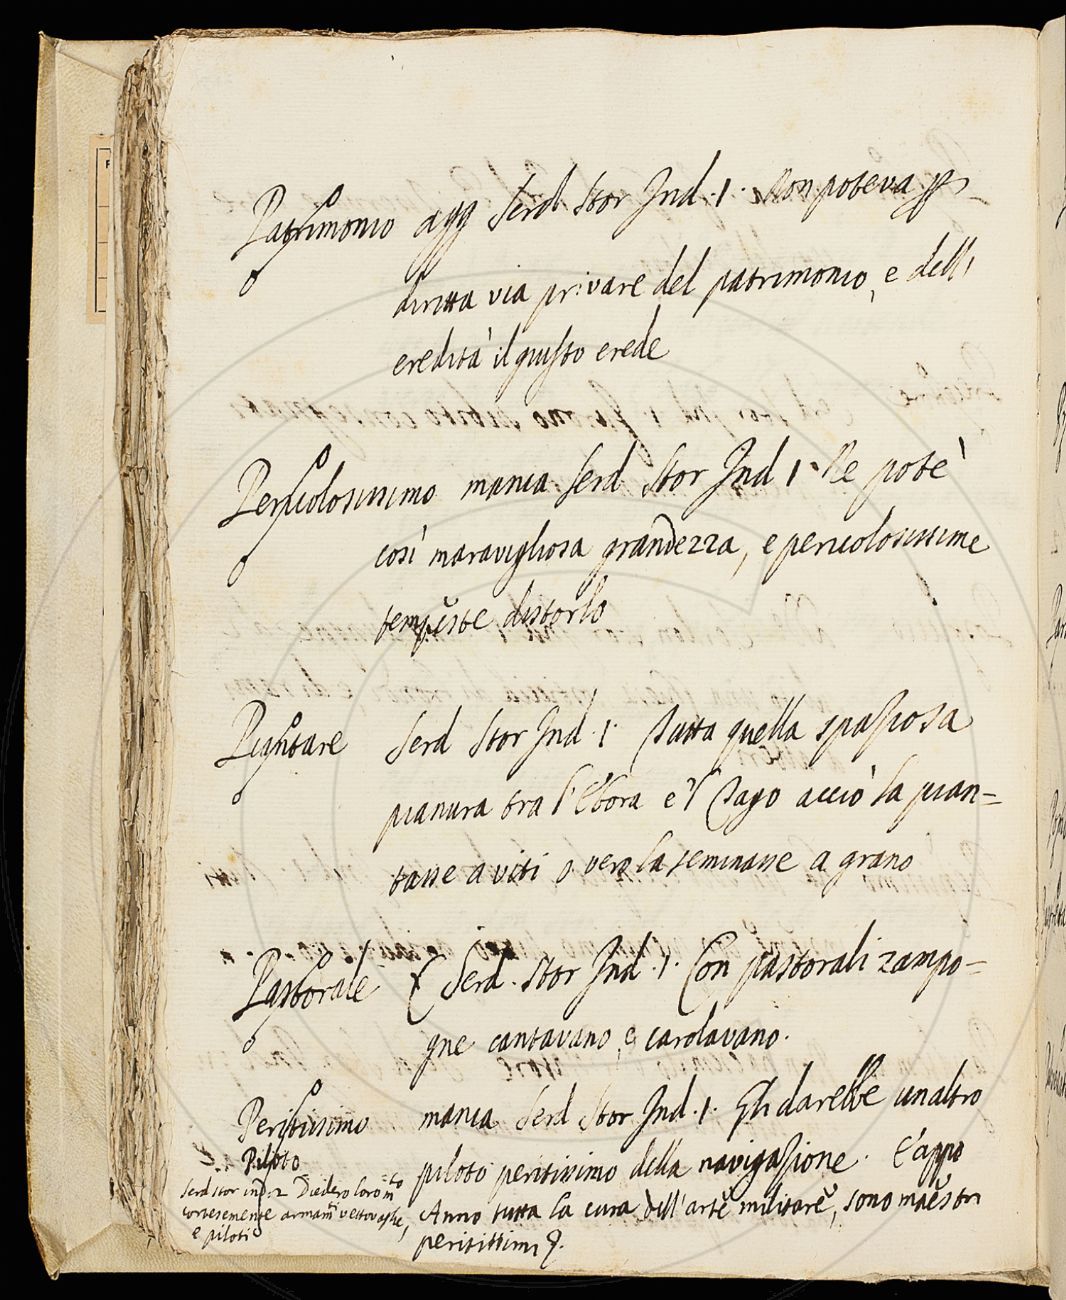 Patrimonio agg Serd Stor Ind. 1. Non poteva p
diritta via privare del patrimonio, e dell'
eredità il giusto erede
Pericolosissimo manca Serd Stor Ind 1. Ne potè
così maravigliosa grandezza, e pericolosissime
tempeste distorlo
Piantare Serd Stor Ind. 1. Tutta quella spaziosa
pianura tra l'Ebora e'l Tago acciò la pian=
tasse a viti o vero la seminasse a grano
Pastorale Serd. Stor Ind. 1. Con pastorali zampo=
gne cantavano, e carolavano.
Peritissimo manca Serd Stor Ind. 1. Gli darebbe un altro
piloto peritissimo della navigazione. E appo
Anno tutta la cura dell'arte militare, sono maestri
peritissimi
Piloto
Serd stor ind: 2 Diedero loro
cortesemente armam.ti vettovaglie,
e piloti